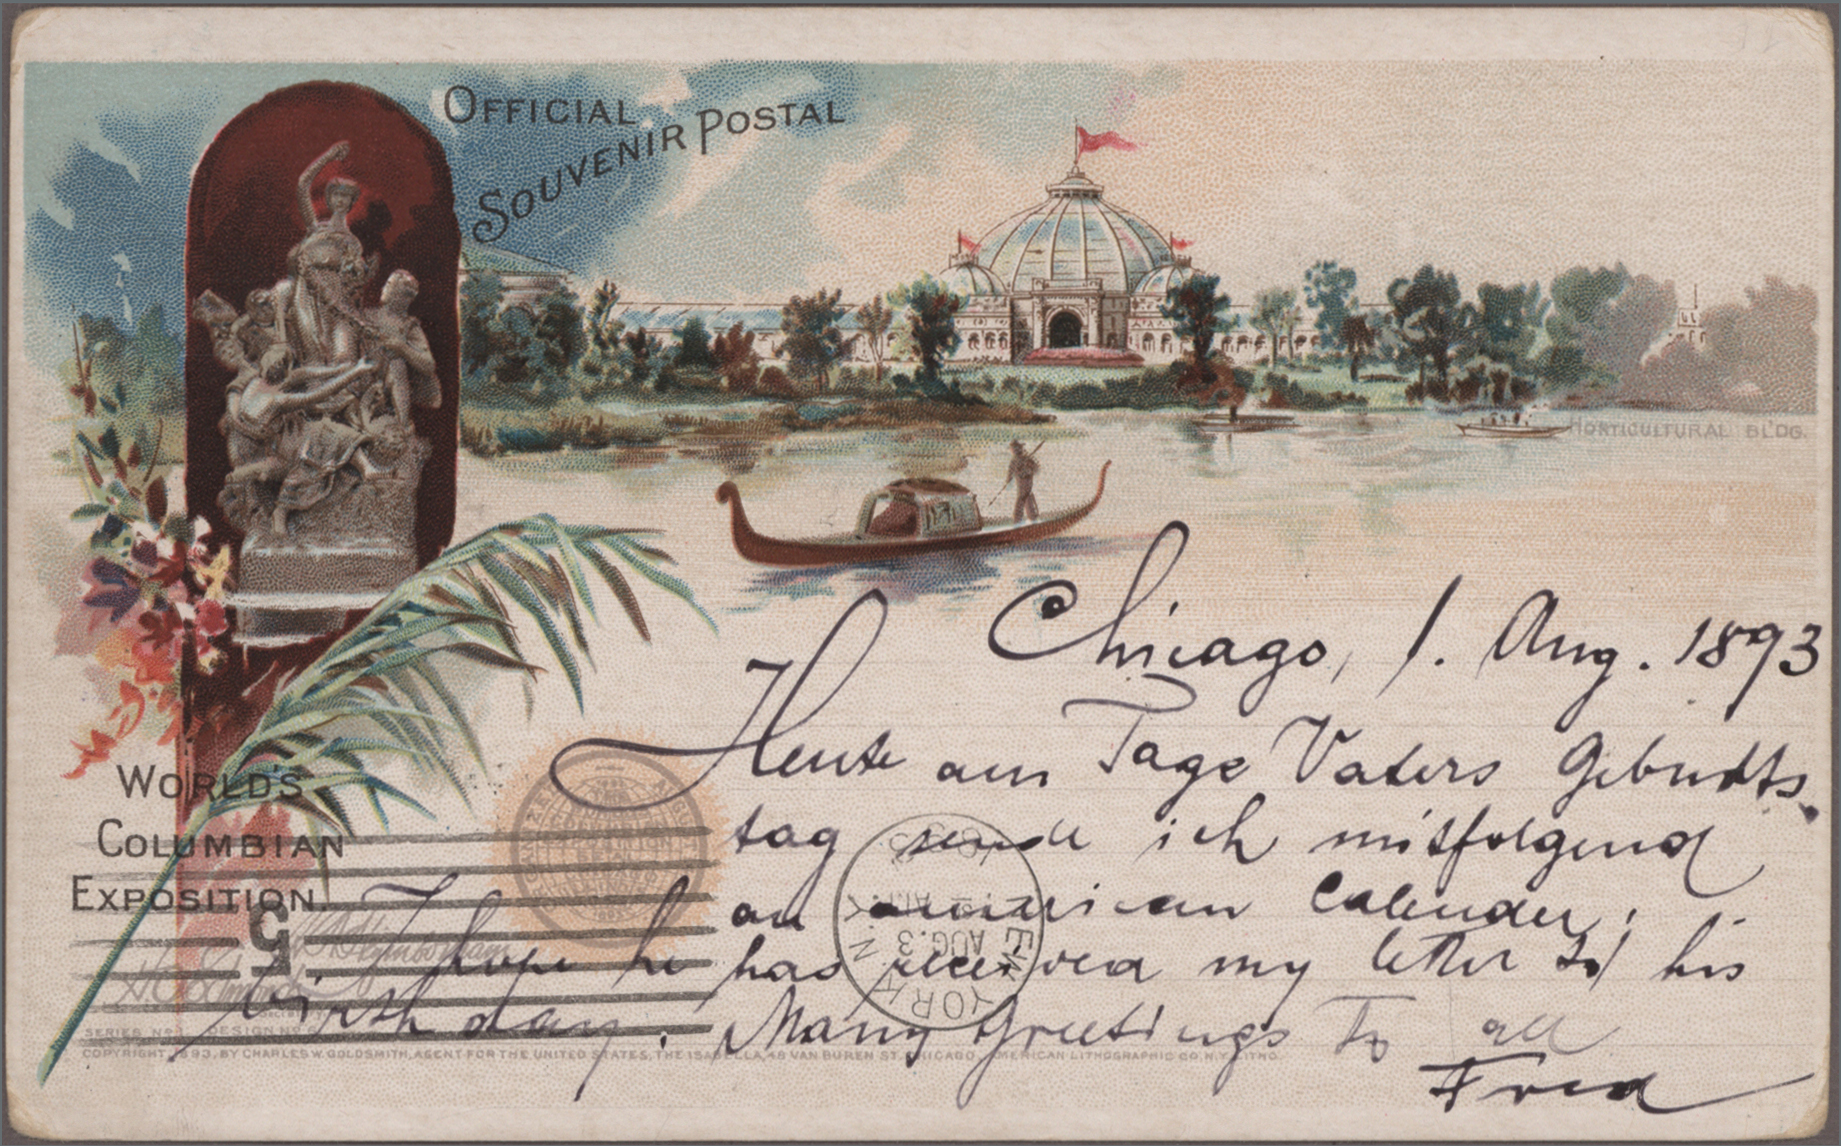 OFFICIAL
SOUVENIR POSTAL
HORTICULTURAL BL'DG.
Chicago, 1. Aug. 1893
Heute am Tage Vaters Geburts-
tag sende ich mitfolgend
an american Calender,
I hope he has received my letter to his
birthday. Many Greetings to all
Fred
WORLD'S
COLUMBIAN
EXPOSITION.
5
SERIES No 1. DESIGN No
COPYRIGHT 1893, BY CHARLES W. GOLDSMITH, AGENT FOR THE UNITED STATES, THE ISABELLA, 48 VAN BUREN ST. CHICAGO. AMERICAN LITHOGRAPHIC CO. N.Y. LITHO.
NEW YORK N.Y.
AUG. 3
93